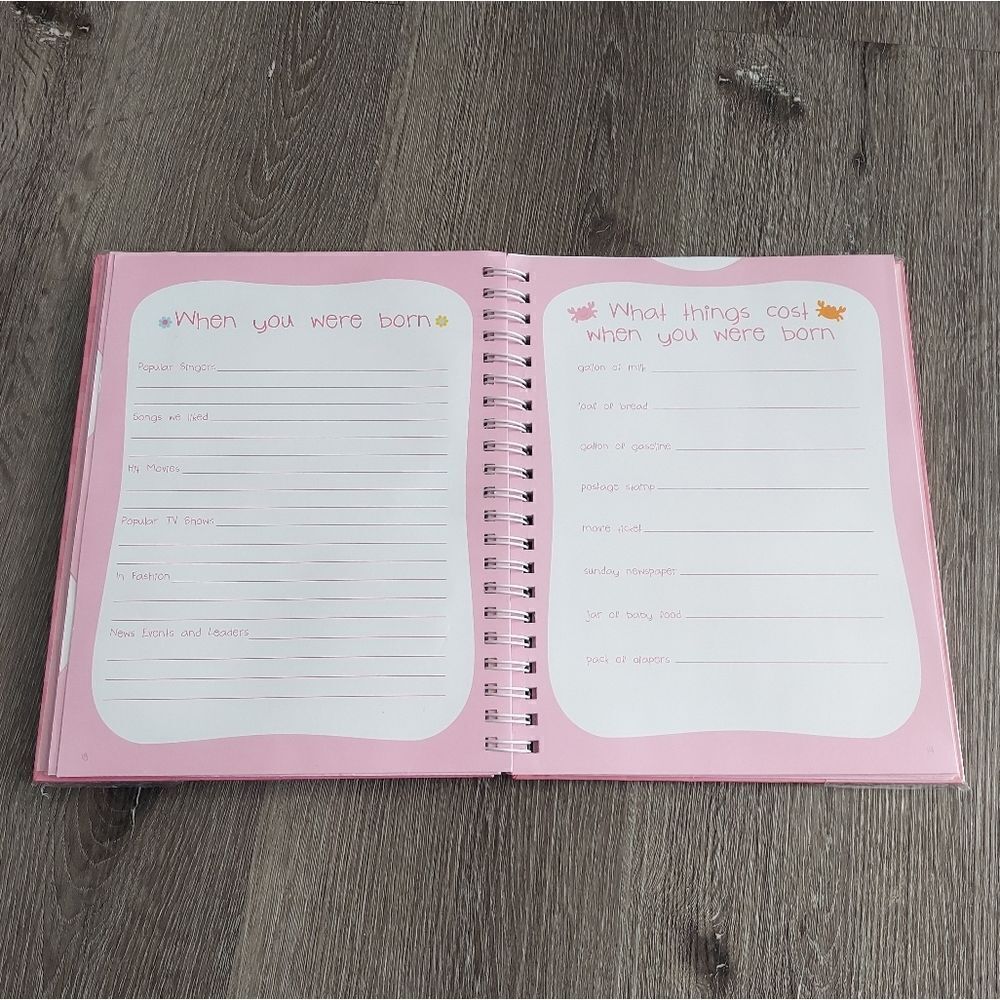 When you were born
Popular Singers
Songs we liked
Hit Movies
Popular TV Shows
In Fashion
News Events and Leaders
What things cost
when you were born
gallon of milk
loaf of bread
gallon of gasoline
postage stamp
movie ticket
sunday newspaper
jar of baby food
pack of diapers